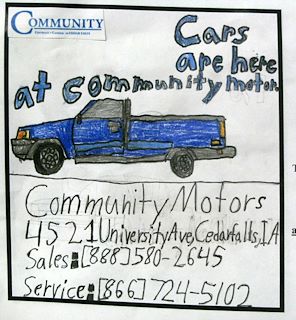 COMMUNITY
Cars
are here
at community motors
Community Motors
4521 University Ave, Cedar falls, IA
Sales: [888] 580-2645
Service: [866] 724-5102